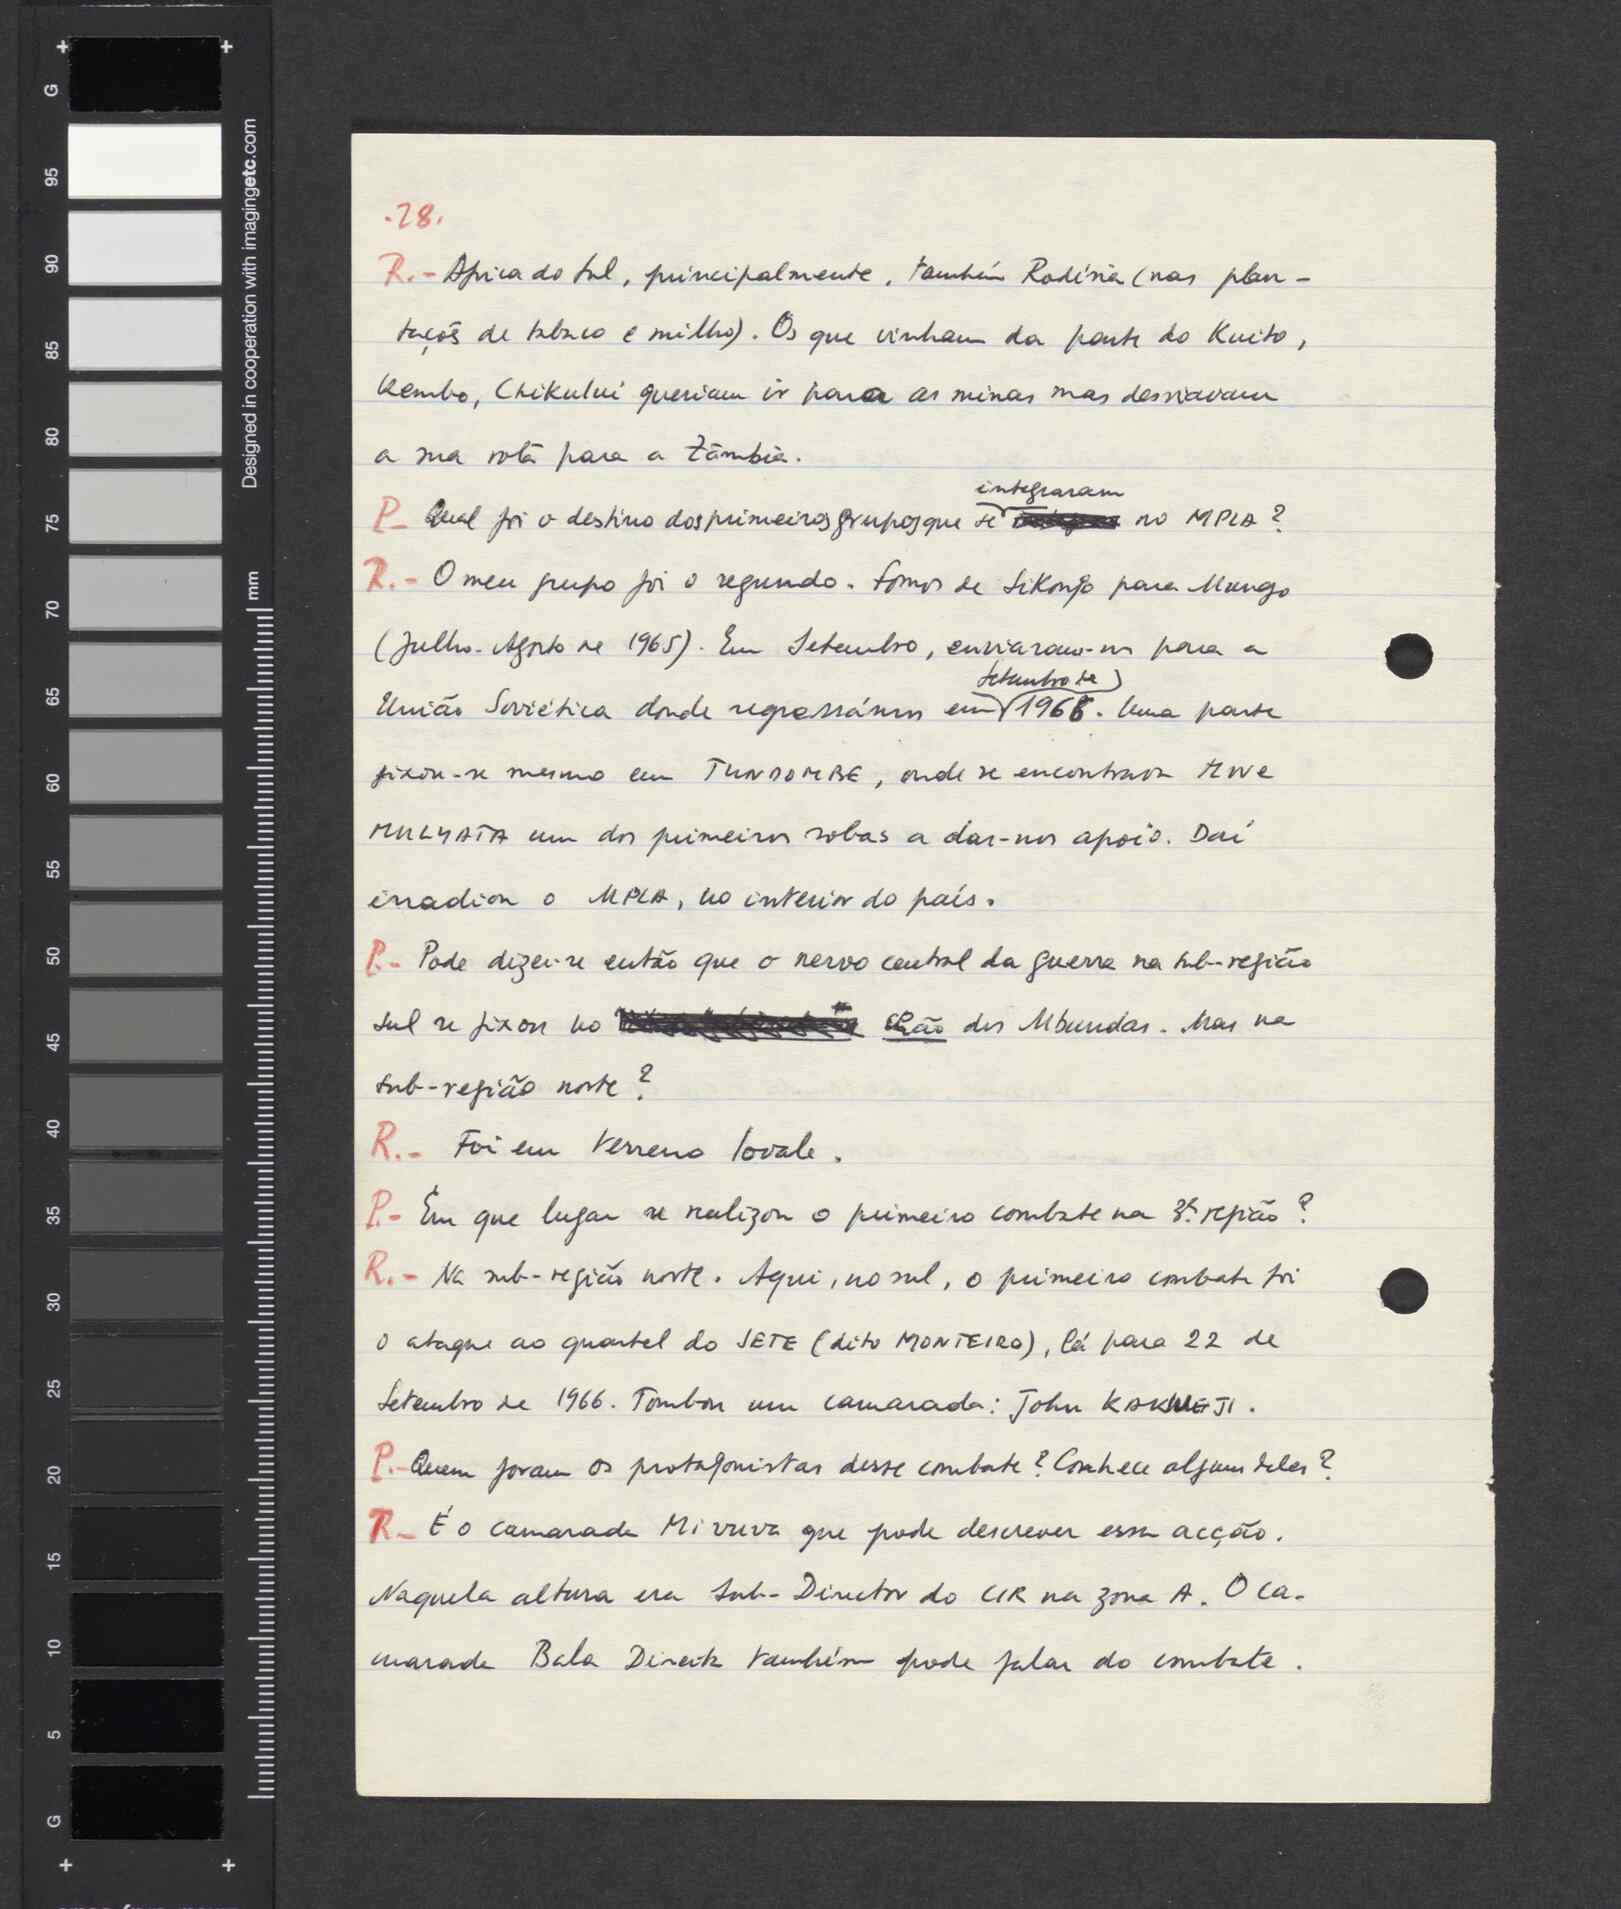 .28.
R.- Africa do Sul, principalmente, também Rodésia (nas plan-
tações de tabaco e milho). Os que vinham da parte do Kuito,
Kembo, Chikului queriam ir para as minas mas desviavam
a sua rota para a Zâmbia.
integraram
P_ Qual foi o destino dos primeiros grupos que se no MPLA?
R.- O meu grupo foi o segundo. Fomos de Sikongo para Mungo
(Julho-Agosto de 1965). Em Setembro, enviaram-nos para a
Setembro de
União Soviética donde regressámos em 1966. Uma parte
fixou-se mesmo em TUNDOMBE, onde se encontrava MWE
MULYATA um dos primeiros sobas a dar-nos apoio. Daí
irradiou o MPLA, no interior do país.
P.- Pode dizer-se então que o nervo central da guerra na sub-região
sul se fixou no chão dos Mbundas. Mas na
sub-região norte?
R.- Foi em terreno lovale.
P.- Em que lugar se realizou o primeiro combate na 3ª região?
R.- Na sub-região norte. Aqui, no sul, o primeiro combate foi
o ataque ao quartel do SETE (dito MONTEIRO), lá para 22 de
Setembro de 1966. Tombou um camarada: John KAKWEJI.
P.- Quem foram os protagonistas desse combate? Conhece alguns deles?
R_ É o camarada Mivuva que pode descrever essa acção.
Naquela altura era Sub-Director do CIR na zona A. O ca-
marada Bala Direita também pode falar do combate.
G
95
90
85
80
75
70
65
60
55
50
45
40
35
30
25
20
15
10
5
G
Designed in cooperation with imagingetc.com
mm